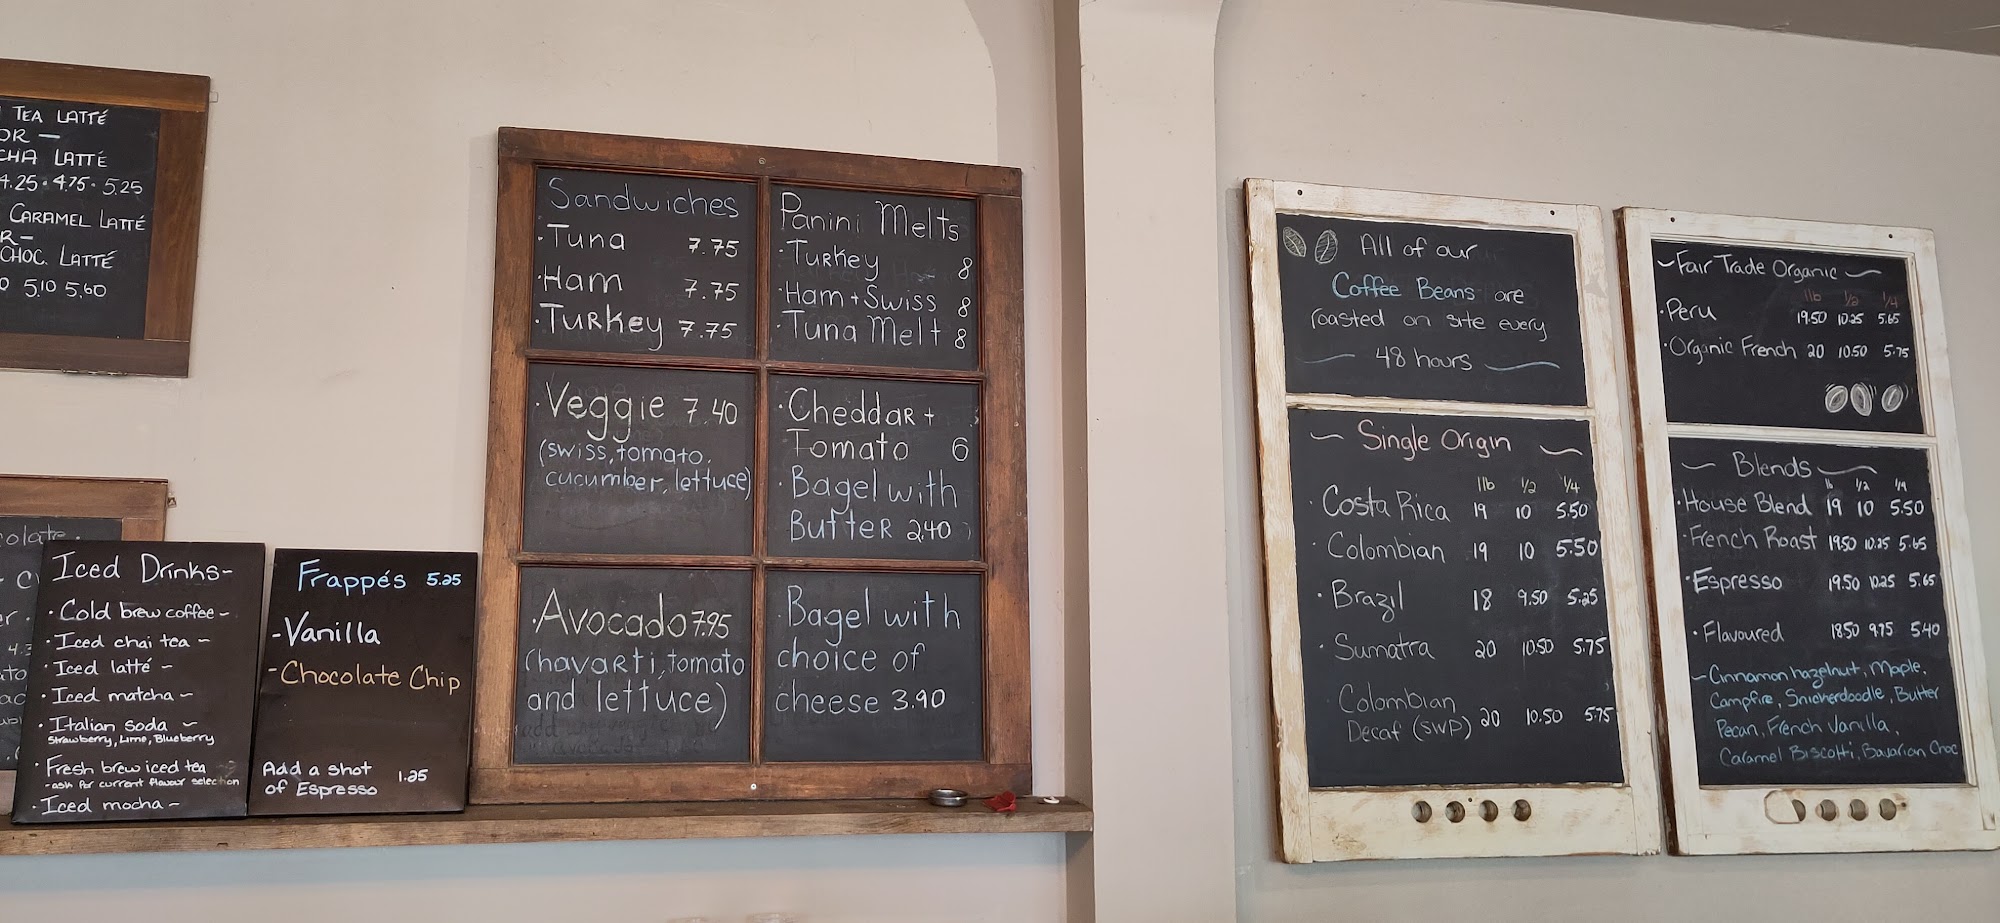 TEA LATTÉ
OR —
CHA LATTÉ
4.25 · 4.75 · 5.25
CARAMEL LATTÉ
R —
CHOC. LATTÉ
0 5.10 5.60
olate.
Iced Drinks -
· Cold brew coffee -
· Iced chai tea ~
· Iced latté -
· Iced matcha ~
· Italian soda ~
Strawberry, Lime, Blueberry
· Fresh brew iced tea
- ask for current flavour selection
· Iced mocha ~
Frappés 5.25
- Vanilla
- Chocolate Chip
Add a shot
of Espresso 1.25
Sandwiches
· Tuna 7.75
· Ham 7.75
· Turkey 7.75
· Veggie 7.40
(swiss, tomato,
cucumber, lettuce)
· Avocado 7.95
(havarti, tomato
and lettuce)
Panini Melts
· Turkey 8
· Ham + Swiss 8
· Tuna Melt 8
· Cheddar +
Tomato 6
· Bagel with
Butter 2.40
· Bagel with
choice of
cheese 3.90
All of our
Coffee Beans are
roasted on site every
48 hours
~ Single Origin ~
1lb 1/2 1/4
· Costa Rica 19 10 5.50
· Colombian 19 10 5.50
· Brazil 18 9.50 5.25
· Sumatra 20 10.50 5.75
· Colombian
Decaf (SWP) 20 10.50 5.75
~ Fair Trade Organic ~
1lb 1/2 1/4
· Peru 19.50 10.25 5.65
· Organic French 20 10.50 5.75
~ Blends ~
lb 1/2 1/4
· House Blend 19 10 5.50
· French Roast 19.50 10.25 5.65
· Espresso 19.50 10.25 5.65
· Flavoured 18.50 9.75 5.40
~ Cinnamon hazelnut, Maple,
Campfire, Snickerdoodle, Butter
Pecan, French Vanilla,
Caramel Biscotti, Bavarian Choc